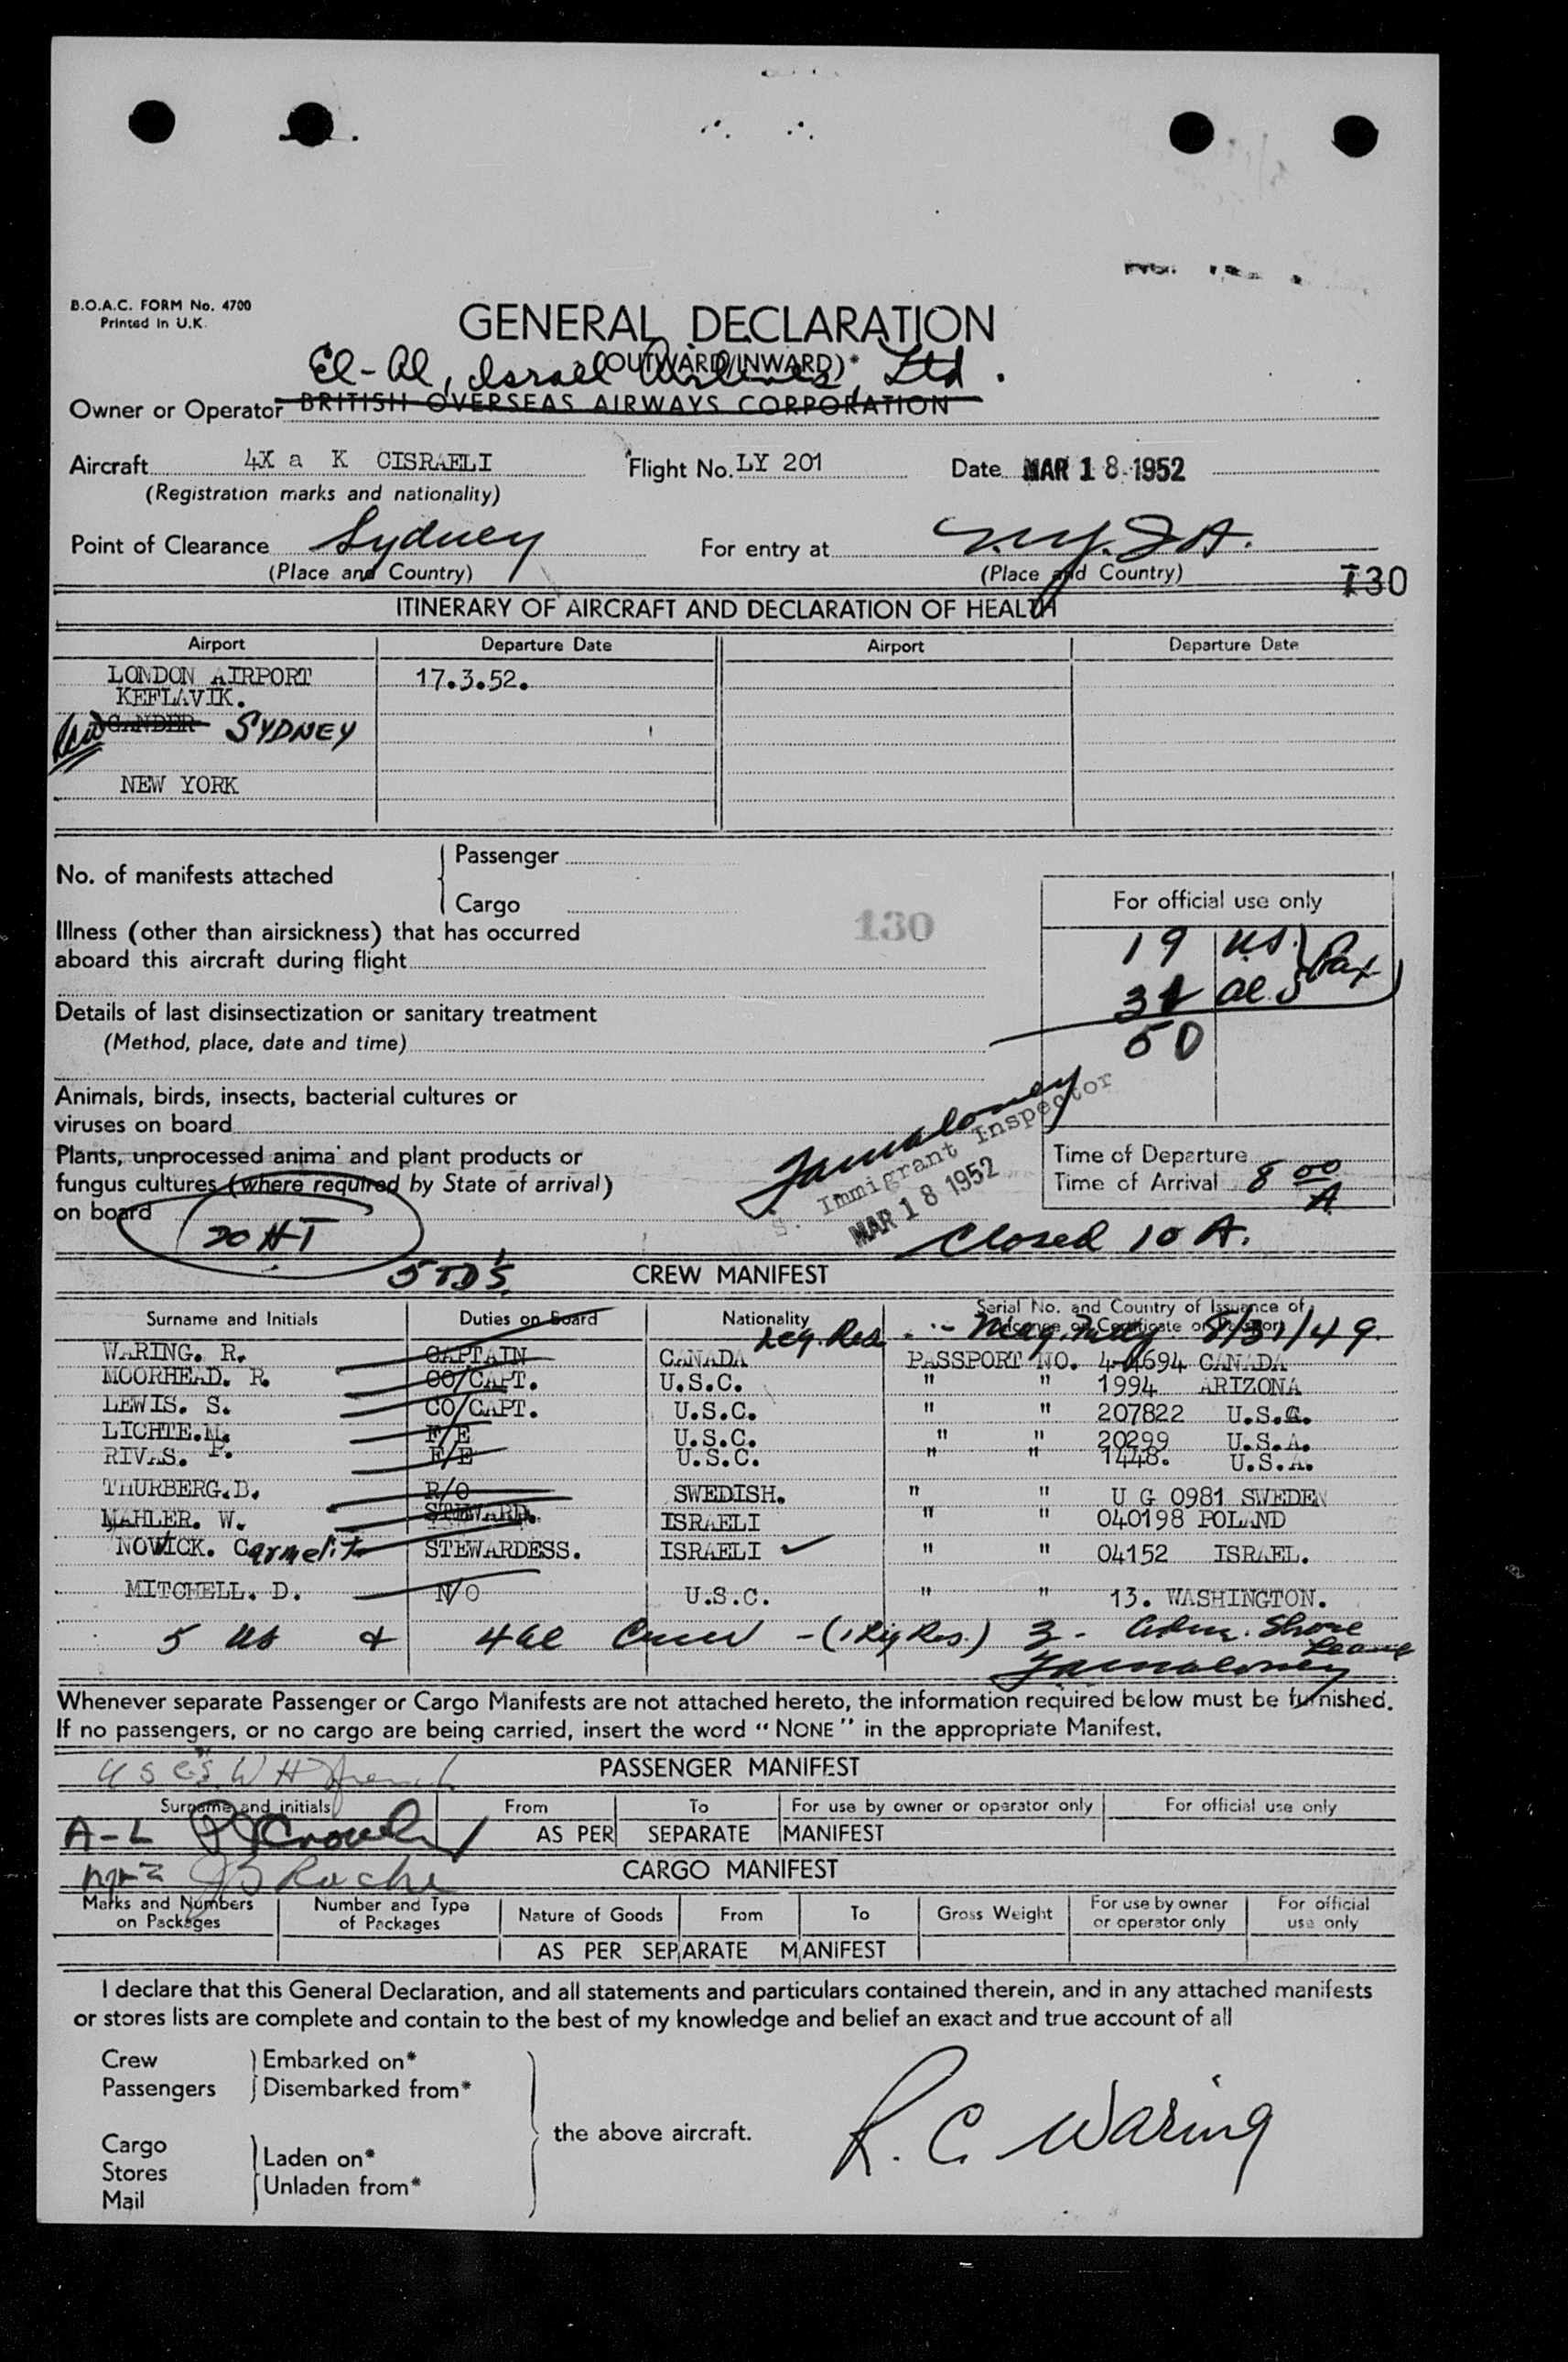 B.O.A.C. FORM No. 4700
Printed in U.K.
GENERAL DECLARATION
(OUTWARD/INWARD)*
El-Al, Israel Airlines, Ltd.
Owner or Operator BRITISH OVERSEAS AIRWAYS CORPORATION
Aircraft 4X a K CISRAELI Flight No. LY 201 Date MAR 18 1952
(Registration marks and nationality)
Point of Clearance Sydney For entry at N.Y.I.A.
(Place and Country) (Place and Country)
130
ITINERARY OF AIRCRAFT AND DECLARATION OF HEALTH
Airport Departure Date Airport Departure Date
LONDON AIRPORT 17.3.52.
KEFLAVIK.
GANDER SYDNEY
NEW YORK
No. of manifests attached
Passenger
Cargo
130
For official use only
Illness (other than airsickness) that has occurred
aboard this aircraft during flight
19 US.
31 al. Pax
50
Details of last disinsectization or sanitary treatment
(Method, place, date and time)
Animals, birds, insects, bacterial cultures or
viruses on board
Plants, unprocessed animal and plant products or
fungus cultures (where required by State of arrival)
on board
20 HT
S. Immigrant Inspector
MAR 18 1952
Time of Departure
Time of Arrival 8 00 A
Closed 10 A.
5 TD's
CREW MANIFEST
Surname and Initials Duties on Board Nationality Serial No. and Country of Issuance of
Licence or Certificate or Passport
Leg. Res 8/31/49.
WARING. R. CAPTAIN CANADA PASSPORT NO. 4-4694 CANADA
MOORHEAD. R. CO/CAPT. U.S.C. " " 1994 ARIZONA
LEWIS. S. CO/CAPT. U.S.C. " " 207822 U.S.A.
LICHTE.M. F/E U.S.C. " " 20299 U.S.A.
RIVAS. P. F/E U.S.C. " " 1448. U.S.A.
THURBERG.B. R/O SWEDISH. " " U G 0981 SWEDEN
MAHLER. W. STEWARD. ISRAELI " " 040198 POLAND
NOVICK. Carmelit STEWARDESS. ISRAELI " " 04152 ISRAEL.
MITCHELL. D. N/O U.S.C. " " 13. WASHINGTON.
5 US & 4 al Crew - (1 Leg Res.) 3 - adm. Shore Leave
Whenever separate Passenger or Cargo Manifests are not attached hereto, the information required below must be furnished.
If no passengers, or no cargo are being carried, insert the word "NONE" in the appropriate Manifest.
PASSENGER MANIFEST
Surname and initials From To For use by owner or operator only For official use only
A-L
AS PER SEPARATE MANIFEST
CARGO MANIFEST
Marks and Numbers on Packages Number and Type of Packages Nature of Goods From To Gross Weight For use by owner or operator only For official use only
AS PER SEPARATE MANIFEST
I declare that this General Declaration, and all statements and particulars contained therein, and in any attached manifests
or stores lists are complete and contain to the best of my knowledge and belief an exact and true account of all
Crew Embarked on*
Passengers Disembarked from*
the above aircraft.
Cargo Laden on*
Stores
Mail Unladen from*
R. C. Waring